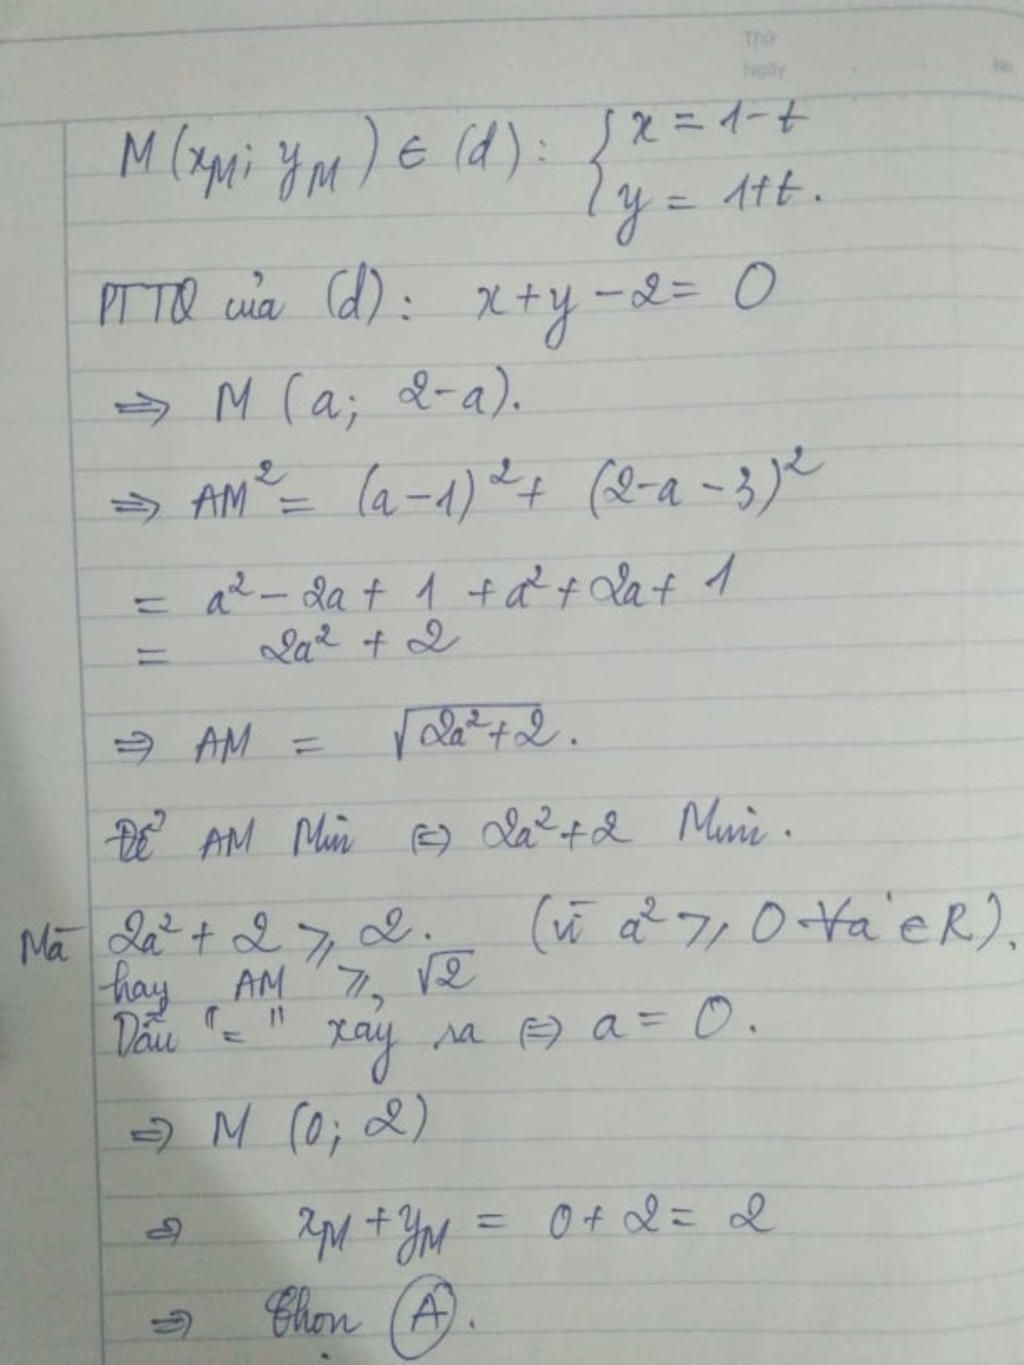 Thứ
Ngày No
M(x_M; y_M) ∈ (d): { x = 1-t
y = 1+t.
PTTQ của (d): x+y-2=0
⇒ M (a; 2-a).
⇒ AM² = (a-1)² + (2-a-3)²
= a² - 2a + 1 + a² + 2a + 1
= 2a² + 2
⇒ AM = √(2a²+2).
Để AM Min ⇔ 2a²+2 Min.
Mà 2a² + 2 ≥ 2. (vì a² ≥ 0 ∀a ∈ R).
hay AM ≥ √2
Dấu "=" xảy ra ⇔ a = 0.
⇒ M (0; 2)
⇒ x_M + y_M = 0 + 2 = 2
⇒ Chọn A.